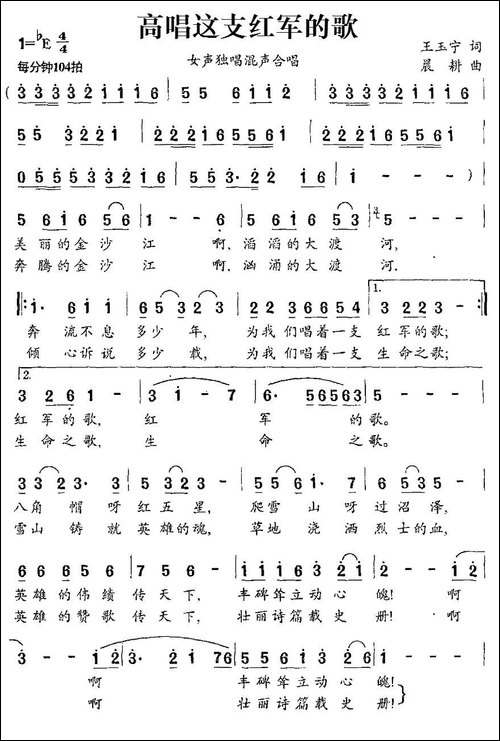 高唱这支红军的歌
1=♭E 4/4
女声独唱混声合唱
王玉宁 词
每分钟104拍
晨 耕 曲
( 3 3 3 3 2 1 1 6 5 5 1 1 2 2 1 6 3 3 3 3 2 1 1 6
5 5 3 2 2 1 2 2 2 2 1 6 5 6 5 5 1 1 2 2
0 5 5 5 3 3 2 2 1 6 5 5 3· 2 2 1 6 1 - - )
5 6 1 6 5 6 1 - - 6 5 1 6 1 6 5 3 5 - -
美 丽 的 金 沙 江 啊, 滔 滔 的 大 渡 河,
奔 腾 的 金 沙 江 啊, 汹 涌 的 大 渡 河.
1· 6 5 6 1 6 5 3 2 3 - 2 2 3 6 6 5 4 3 2 2 3 -
1.
奔 流 不 息 多 少 年, 为 我 们 唱 着 一 支 红 军 的 歌;
倾 心 诉 说 多 少 载, 为 我 们 唱 着 一 支 生 命 之 歌;
2.
3 2 6 1 - 3 1 - 7 6· 5 6 5 6 3 5 - - -
红 军 的 歌, 红 军 的 歌。
生 命 之 歌, 生 命 之 歌。
八 角 帽 呀 红 五 星, 爬 雪 山 呀 过 沼 泽,
雪 山 铸 就 英 雄 的 魂, 草 地 浇 洒 烈 士 的 血,
6 6 6 5 6 7 5 6 - 1 1 1 6 3 2 1 - 1 2
英 雄 的 伟 绩 传 天 下, 丰 碑 耸 立 动 心 魄! 啊
英 雄 的 赞 歌 传 天 下, 壮 丽 诗 篇 载 史 册! 啊
3 - - 1 2 3· 2 1 2 7 6 5 5 6 1 3 2 1 - -
啊 丰 碑 耸 立 动 心 魄!
啊 壮 丽 诗 篇 载 史 册!